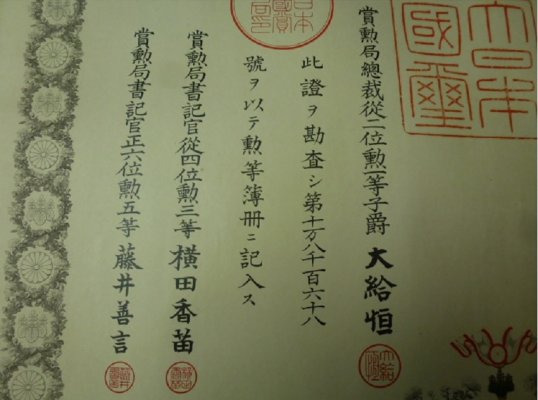 大日本
國璽
賞勲局總裁從二位勲一等子爵 大給恒
大給恒
此證ヲ勘査シ第十万八千百六十八
號ヲ以テ勲等簿册ニ記入ス
日本
局印
賞勲局書記官從四位勲三等 横田香苗
賞勲局書記官正六位勲五等 藤井善言